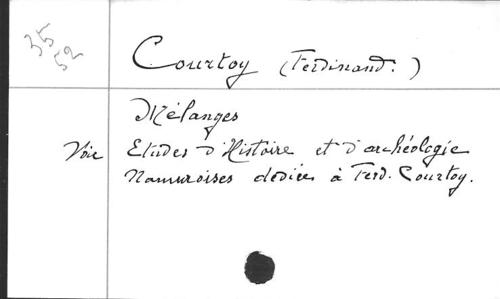 35
52
Courtoy (Ferdinand.)
Mélanges
Voir Etudes d'Histoire et d'archéologie
Namuroises dédiées à Ferd. Courtoy.